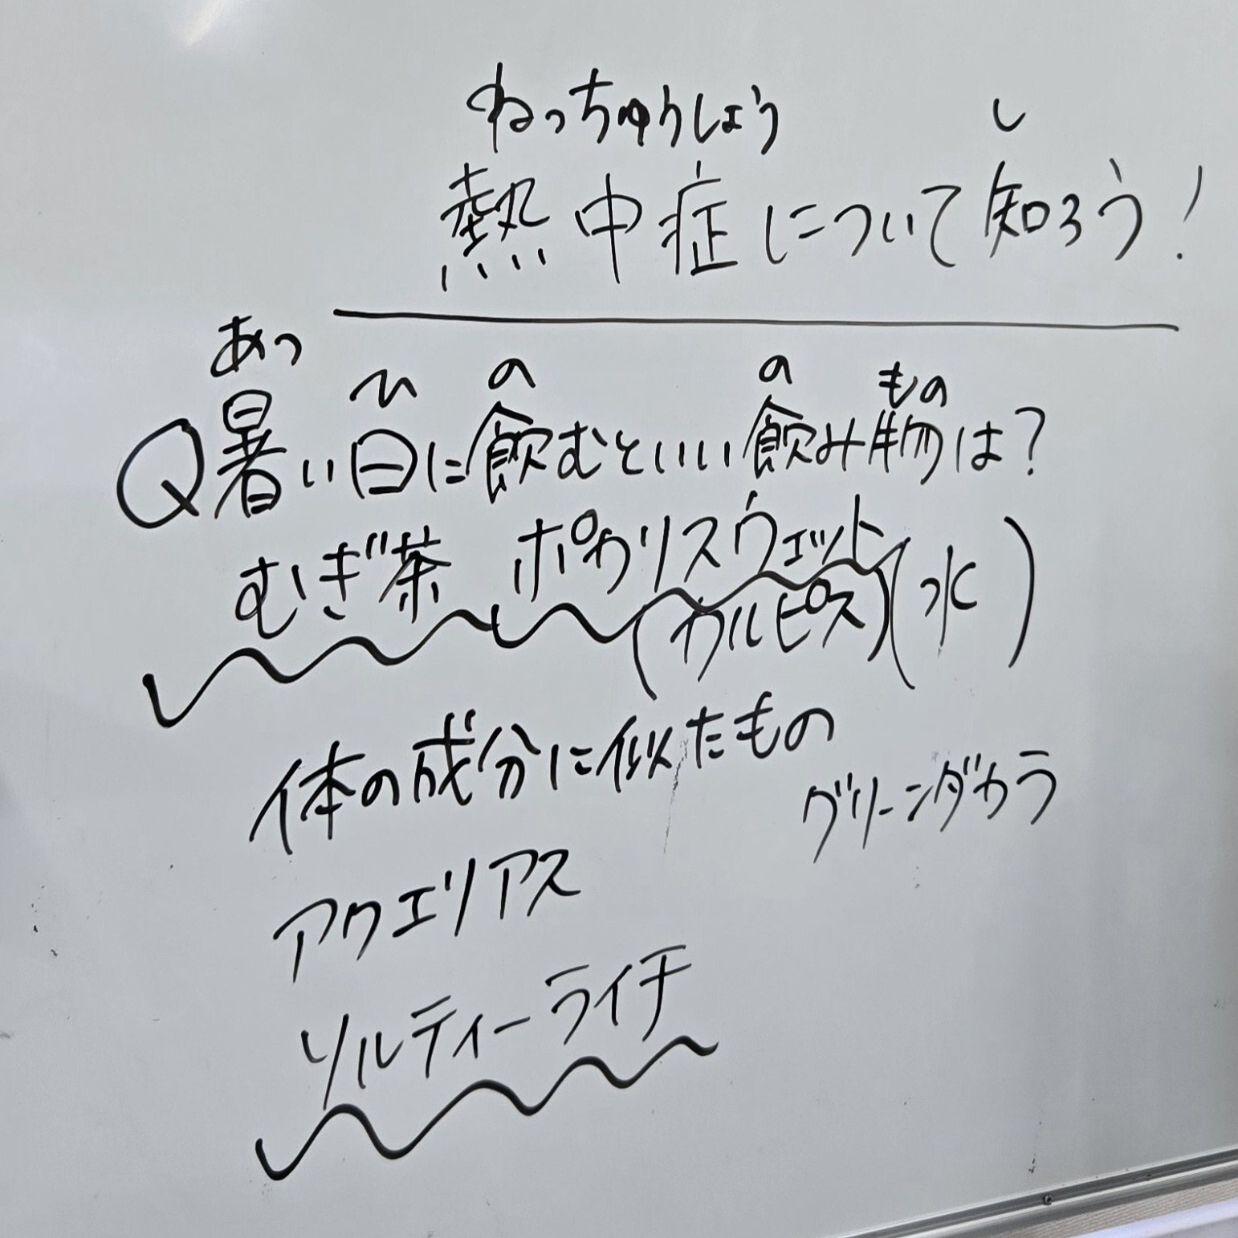 ねっちゅうしょう し
熱中症について知ろう!
あっ ひ の の もの
Q暑い日に飲むといい飲み物は?
むぎ茶 ポカリスウェット
(カルピス)(水)
体の成分に似たもの
グリーンダカラ
アクエリアス
ソルティーライチ